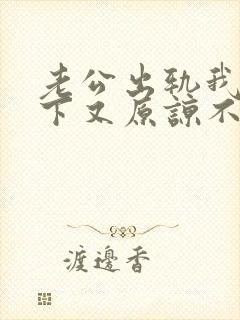 老公出轨我
下又原諒不
渡邊香